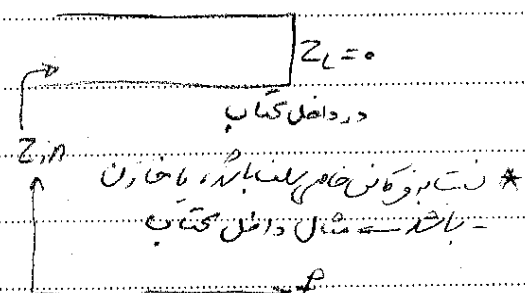 Z_L = 0
در داخل کتاب
Z_in
* نسبت به فرکانس خاص سلف باشد، یا خازن
باشد ⇒ مثال داخل کتاب
l